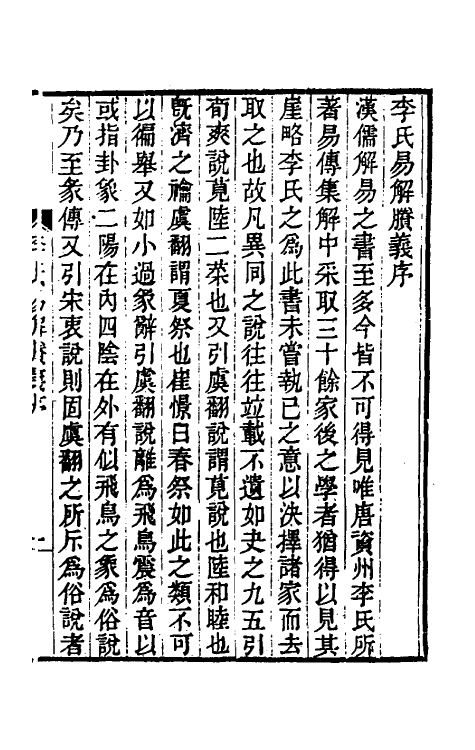 李氏易解賸義序
漢儒解易之書至多今皆不可得見唯唐資州李氏所
著易傳集解中采取三十餘家後之學者猶得以見其
崖略李氏之爲此書未嘗執己之意以決擇諸家而去
取之也故凡異同之說往往竝載不遺如夬之九五引
荀爽說莧陸二菜也又引虞翻說謂莧說也陸和睦也
旣濟之禴虞翻謂夏祭也崔憬曰春祭如此之類不可
以徧舉又如小過彖辭引虞翻說離爲飛鳥震爲音以
或指卦象二陽在內四陰在外有似飛鳥之象爲俗說
矣乃至彖傳又引宋衷說則固虞翻之所斥爲俗說者
李氏易解賸義序
一